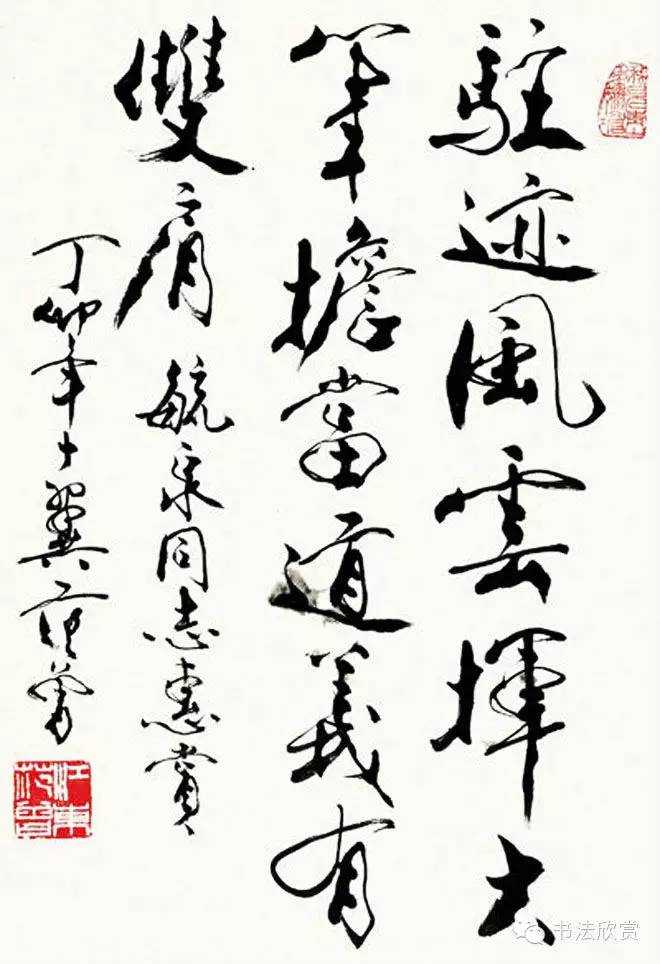 駐迹風雲揮大
筆擔當道義有
雙肩
毓泉同志惠賞
丁卯年十翼范曾
江東范曾
书法欣赏